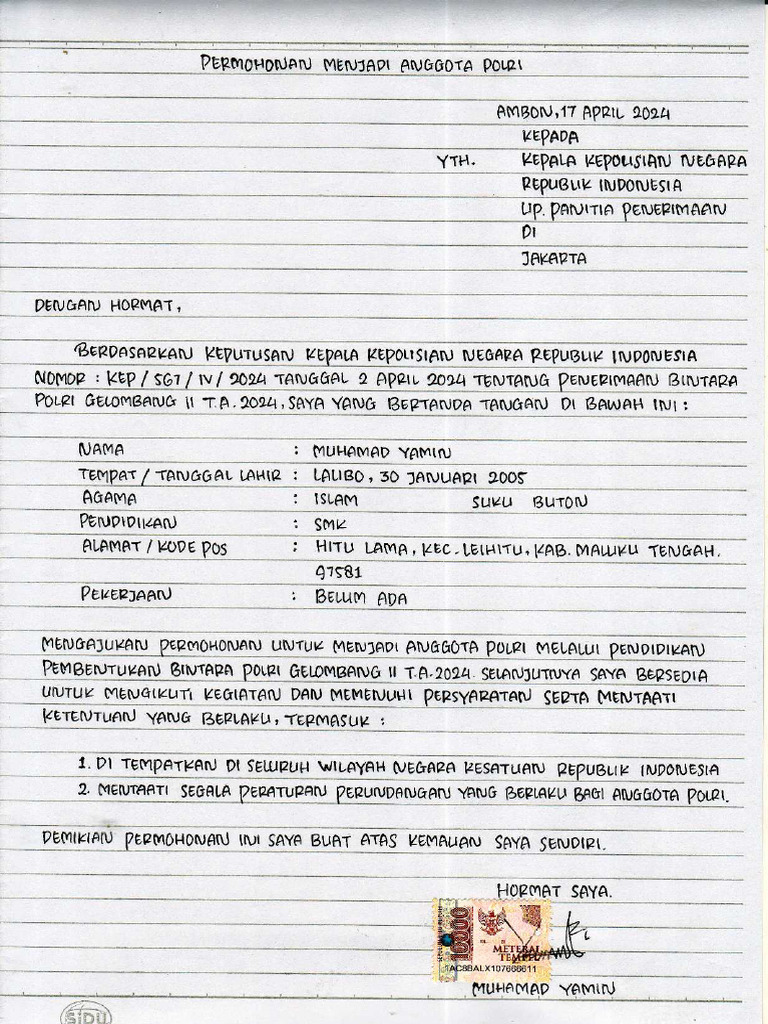 PERMOHONAN MENJADI ANGGOTA POLRI
AMBON, 17 APRIL 2024
KEPADA
YTH. KEPALA KEPOLISIAN NEGARA
REPUBLIK INDONESIA
UP. PANITIA PENERIMAAN
DI
JAKARTA
DENGAN HORMAT,
BERDASARKAN KEPUTUSAN KEPALA KEPOLISIAN NEGARA REPUBLIK INDONESIA
NOMOR : KEP / 567 / IV / 2024 TANGGAL 2 APRIL 2024 TENTANG PENERIMAAN BINTARA
POLRI GELOMBANG II T.A. 2024, SAYA YANG BERTANDA TANGAN DI BAWAH INI :
NAMA : MUHAMAD YAMIN
TEMPAT / TANGGAL LAHIR : LALIBO, 30 JANUARI 2005
AGAMA : ISLAM SUKU BUTON
PENDIDIKAN : SMK
ALAMAT / KODE POS : HITU LAMA, KEC. LEIHITU, KAB. MALUKU TENGAH.
97581
PEKERJAAN : BELUM ADA
MENGAJUKAN PERMOHONAN UNTUK MENJADI ANGGOTA POLRI MELALUI PENDIDIKAN
PEMBENTUKAN BINTARA POLRI GELOMBANG II T.A. 2024. SELANJUTNYA SAYA BERSEDIA
UNTUK MENGIKUTI KEGIATAN DAN MEMENUHI PERSYARATAN SERTA MENTAATI
KETENTUAN YANG BERLAKU, TERMASUK :
1. DI TEMPATKAN DI SELURUH WILAYAH NEGARA KESATUAN REPUBLIK INDONESIA
2. MENTAATI SEGALA PERATURAN PERUNDANGAN YANG BERLAKU BAGI ANGGOTA POLRI.
DEMIKIAN PERMOHONAN INI SAYA BUAT ATAS KEMAUAN SAYA SENDIRI.
HORMAT SAYA.
10000
METERAI
TEMPEL
1AC8BALX107668611
MUHAMAD YAMIN
SIDU